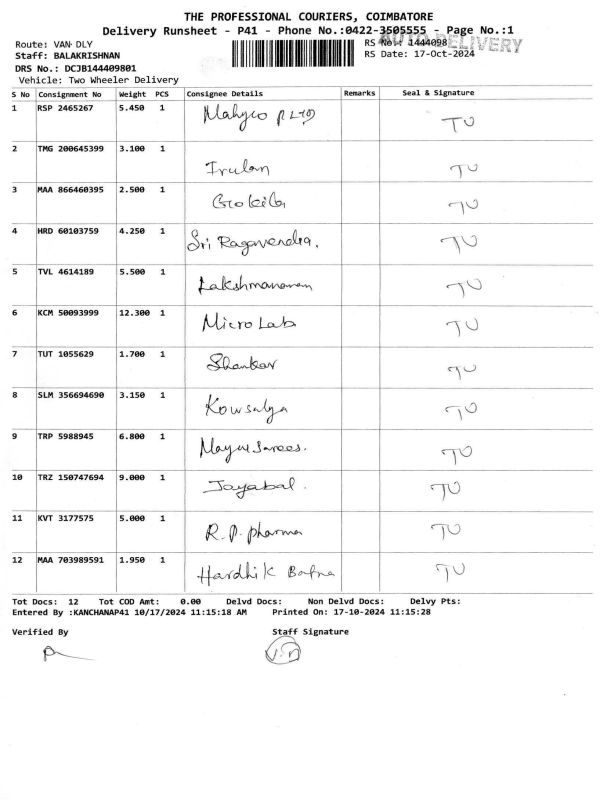 THE PROFESSIONAL COURIERS, COIMBATORE
Delivery Runsheet - P41 - Phone No.:0422-3505555 - Page No.:1
Route: VAN DLY RS No.: 1444098
AUTO DELIVERY
Staff: BALAKRISHNAN RS Date: 17-Oct-2024
DRS No.: DCJB144409801
Vehicle: Two Wheeler Delivery
S No Consignment No Weight PCS Consignee Details Remarks Seal & Signature
1 RSP 2465267 5.450 1 Mahyco P LTD TU
2 TMG 200645399 3.100 1 Irulan TU
3 MAA 866460395 2.500 1 TU
4 HRD 60103759 4.250 1 Sri Ragavendra. TU
5 TVL 4614189 5.500 1 Lakshmanan TU
6 KCM 50093999 12.300 1 Micro Lab TU
7 TUT 1055629 1.700 1 Shankar TU
8 SLM 356694690 3.150 1 Kowsalya TU
9 TRP 5988945 6.800 1 Mayur Sarees. TU
10 TRZ 150747694 9.000 1 Jayabal. TU
11 KVT 3177575 5.000 1 R.P. pharma TU
12 MAA 703989591 1.950 1 Hardhik Bafna TU
Tot Docs: 12 Tot COD Amt: 0.00 Delvd Docs: Non Delvd Docs: Delvy Pts:
Entered By :KANCHANAP41 10/17/2024 11:15:18 AM Printed On: 17-10-2024 11:15:28
Verified By Staff Signature